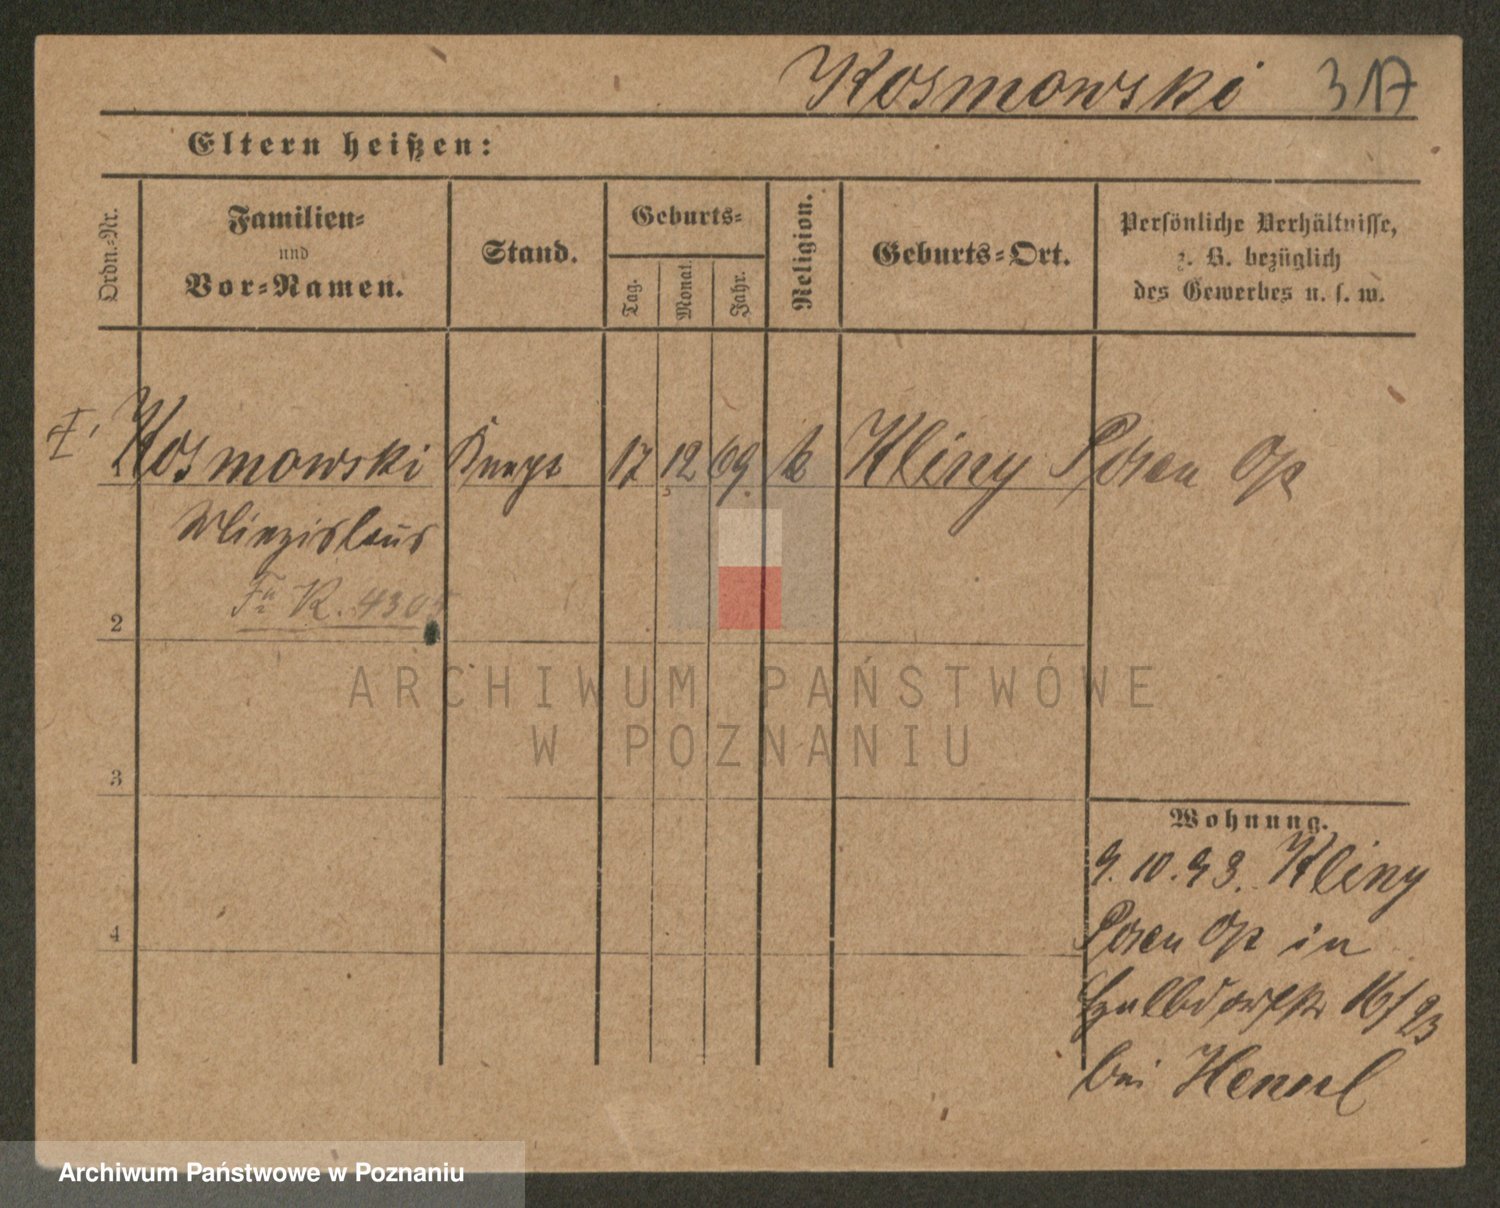 Kosmowski 317
Eltern heißen:
Ordn.-Nr.
Familien-
und
Vor-Namen.
Stand.
Geburts-
Tag.
Monat.
Jahr.
Religion.
Geburts-Ort.
Persönliche Verhältnisse,
z. B. bezüglich
des Gewerbes u. s. w.
Kosmowski Knecht 17 12 69 k Kliny Posen Op
Miecislaus
R. 4305
2
ARCHIWUM PAŃSTWOWE
W POZNANIU
3
Wohnung.
9.10.93. Kliny
4
Posen Op in
16/93
bei
Archiwum Państwowe w Poznaniu